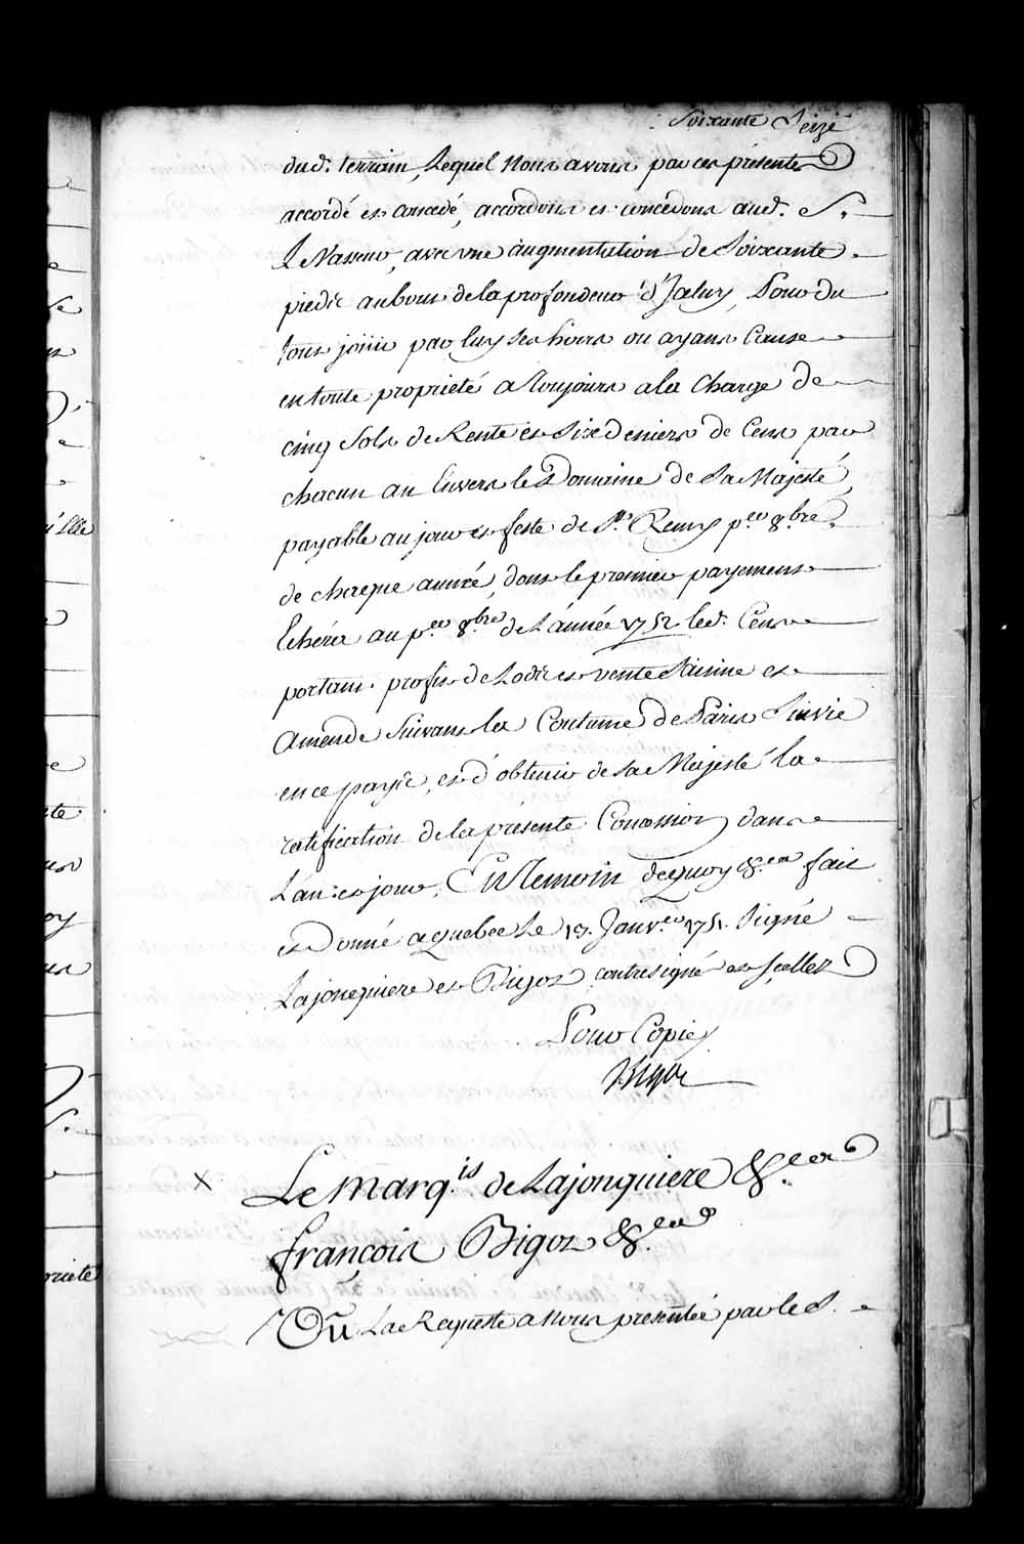 Soixante Seize
dud. terrain, Lequel Nous avons par ces presentes
accordé et concedé, accordons et concedons aud. S.
LeVasseur, avec une augmentation de Soixante
pieds au bout de la profondeur d'Iceluy, Pour du
tout jouir par luy ses hoirs ou ayans Cause
en toute proprieté a Toujours a la Charge de
cinq Sols de Rente et Six Deniers de Cens par
chacun an Envers le Domaine de Sa Majesté,
payable au jour et feste de St. Remy p.er 8.bre
de chaque année, dont le premier payement
Echéra au p.er 8.bre de L'année 1752 led. Cens
portant profit de Lods et vente Saisine et
Amende Suivant la Coutume de Paris Suivie
en ce payis, et d'obtenir de Sa Majesté la
ratification de la presente Concession dans
L'an: ce jour, En Temoin de quoy &.ca fait
et Donné a Quebec Le 17. Janv.er 1751. Signé
Lajonquiere et Bigot contresigné et Scellé
Pour Copie
Bigot
X Le Marq.is de Lajonquiere &.ca
françois Bigot &.ca
Vû La Requeste a Nous presentée par le S.